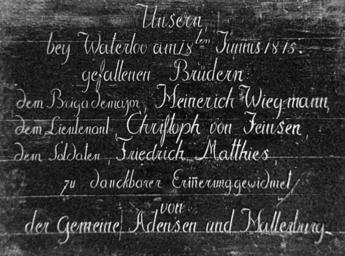 Unsern
bey Waterloo am 18ten Junius 1815.
gefallenen Brüdern
dem Brigademajor, Heinerich Wiegmann,
dem Lieutenant, Christoph von Feinsen,
dem Soldaten, Friedrich Matthies,
zu danckbarer Erinerung gewidmet
von
der Gemeine Adensen und Hallerburg.